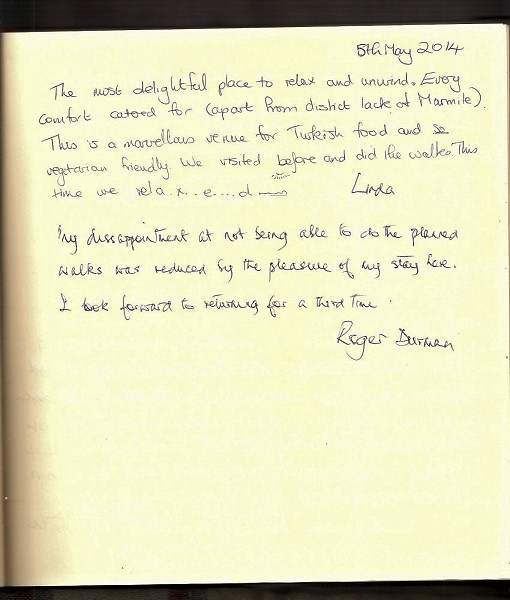 5th May 2014
The most delightful place to relax and unwind. Every
comfort catered for (apart from distict lack of Marmite).
This is a marvellous venue for Turkish food and so
vegetarian friendly. We visited before and did the walks. This
time we rela..x...e....d
Linda
My dissappointment at not being able to do the planned
walks was reduced by the pleasure of my stay here.
I look forward to returning for a third time.
Roger Durman